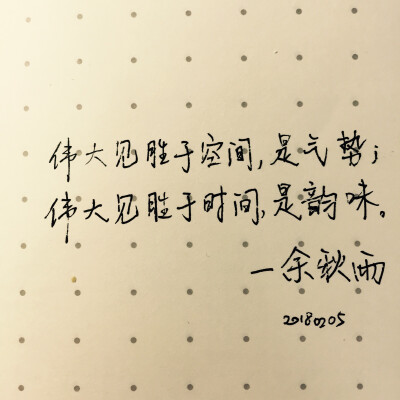 伟大见胜于空间,是气势;
伟大见胜于时间,是韵味。
—余秋雨
20180205